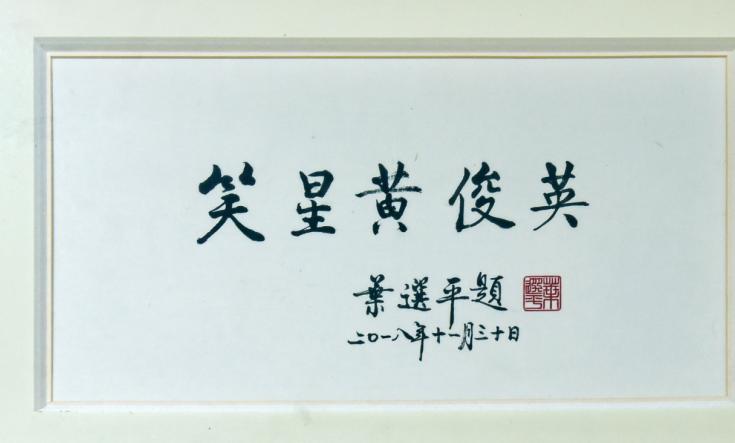 笑星黄俊英
葉選平題
二〇一八年十一月三十日
葉選平